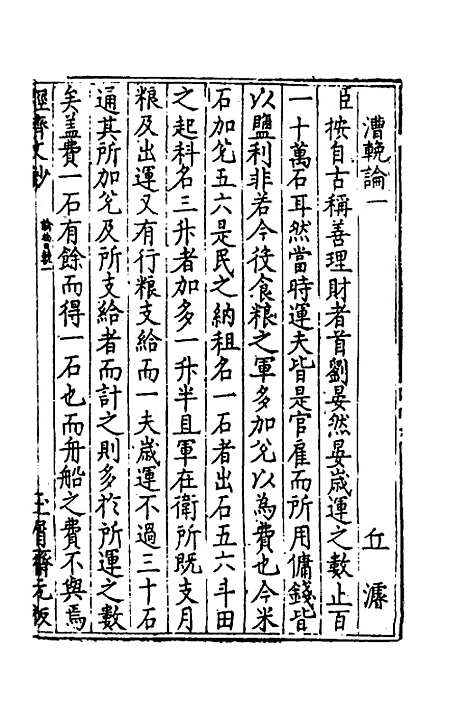 漕輓論一
丘濬
臣按自古稱善理財者首劉晏然晏歲運之數止百
一十萬石耳然當時運夫皆是官雇而所用傭錢皆
以鹽利非若今役食粮之軍多加兊以為費也今米
石加兊五六是民之納租名一石者出石五六斗田
之起科名三升者加多一升半且軍在衛所既支月
粮及出運又有行粮支給而一夫歲運不過三十石
通其所加兊及所支給者而計之則多於所運之數
矣盖費一石有餘而得一石也而舟船之費不與焉
經濟文抄